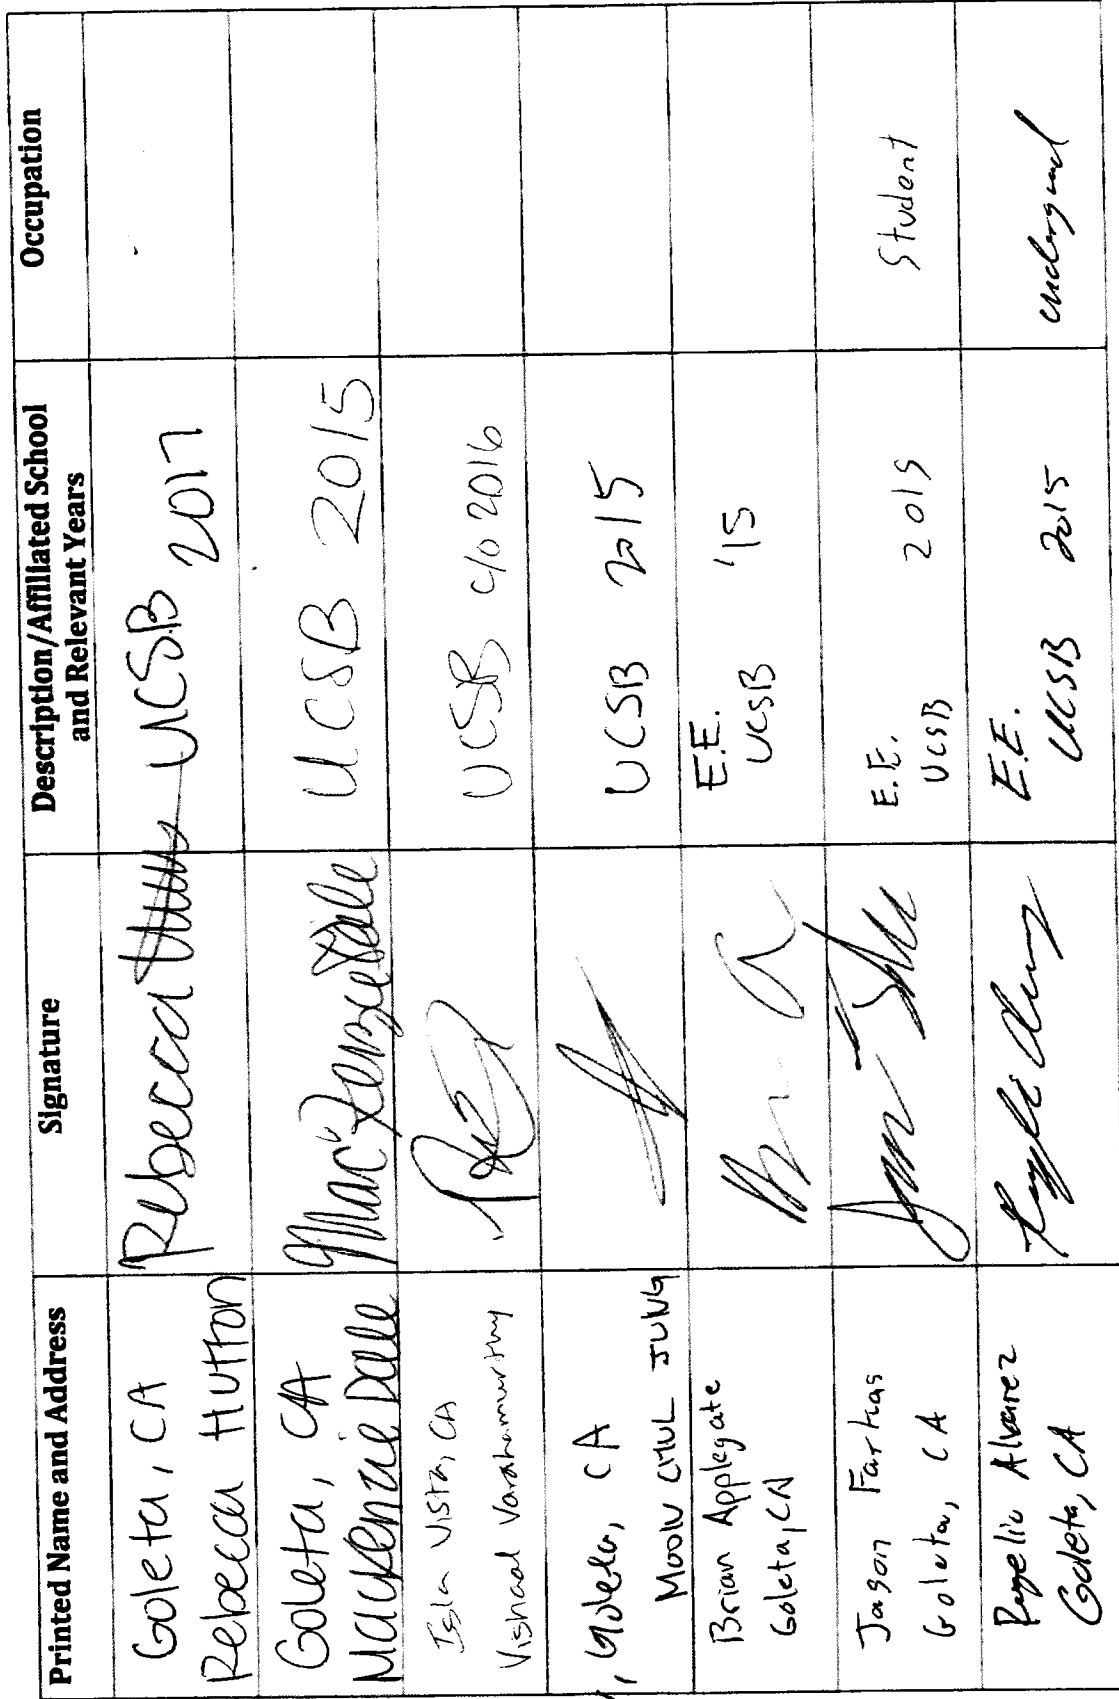 Printed Name and Address
Signature
Description/Affiliated School
and Relevant Years
Occupation
Goleta, CA
Rebecca Hutton
Rebecca
UCSB
2017
Goleta, CA
Mackenzie Dale
Mackenzie Dale
UCSB 2015
Isla Vista, CA
Vishaal Varahamurthy
UCSB c/o 2016
Goleta, CA
MOON CHUL JUNG
UCSB 2015
Brian Applegate
Goleta, CA
E.E.
UCSB '15
Jason Farkas
Goleta, CA
E.E.
UCSB 2015
Student
Alvarez
Goleta, CA
E.E.
UCSB 2015
undergrad